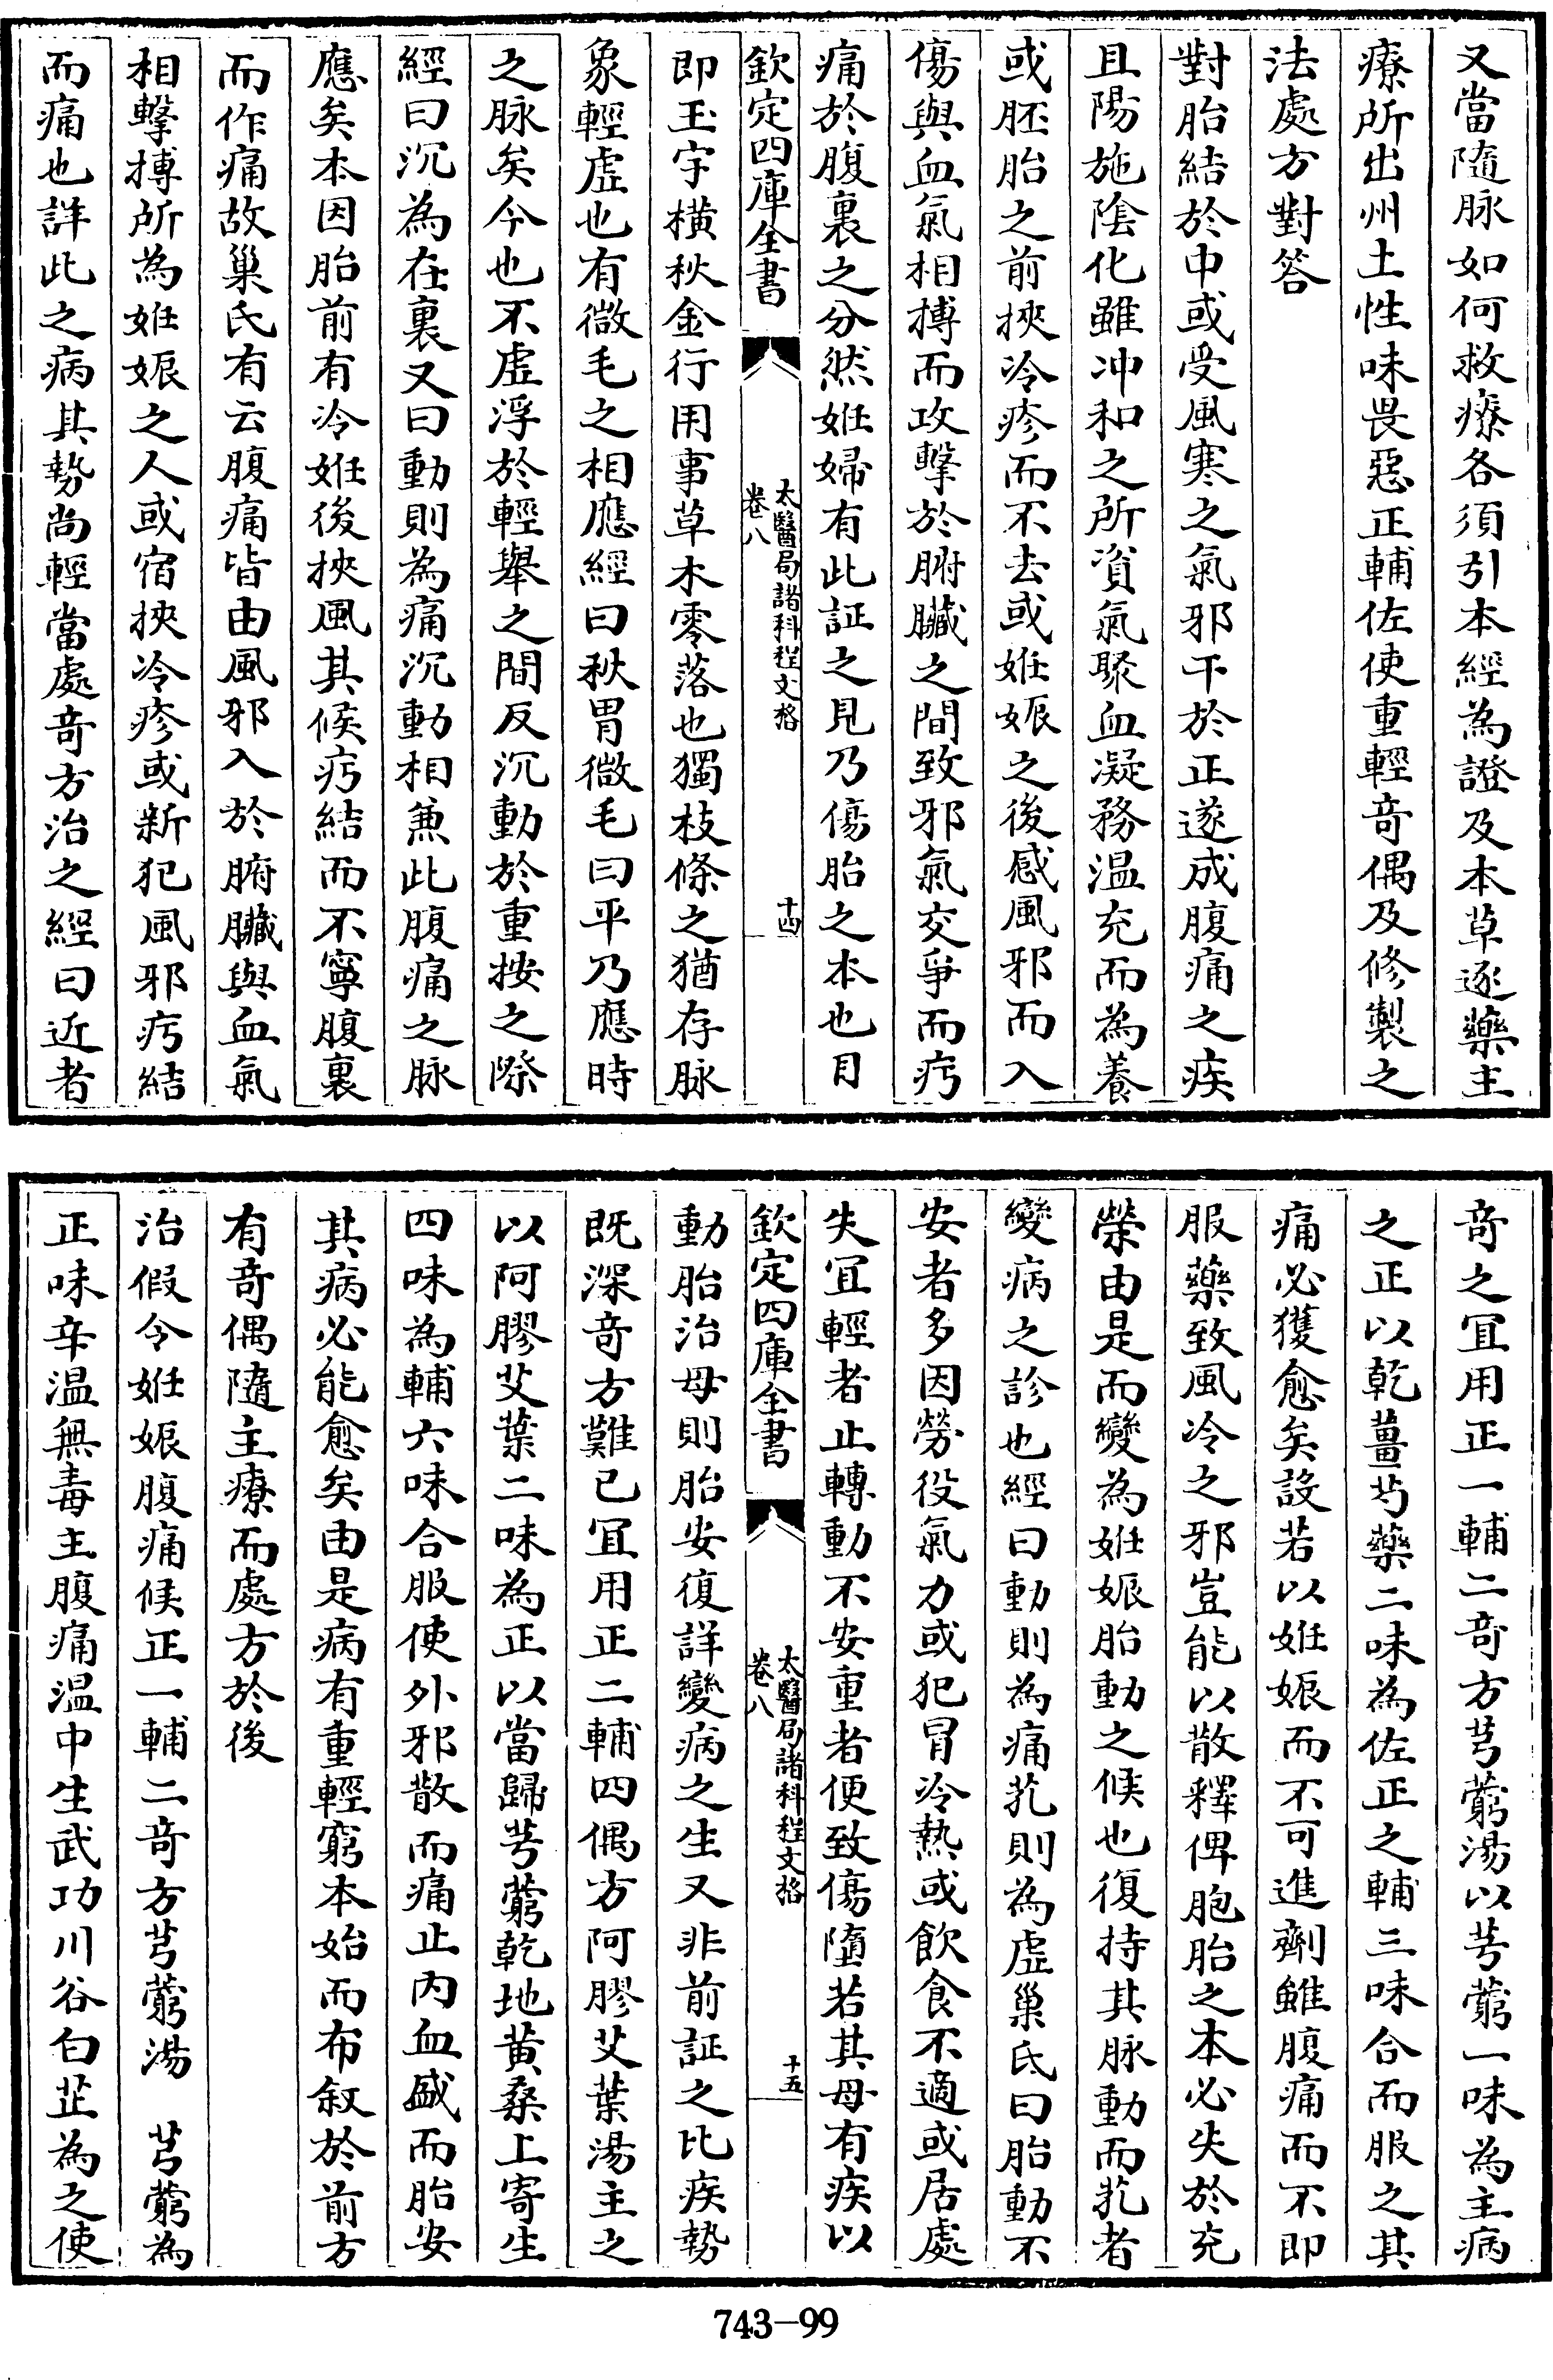 又當隨脉如何救療各須引本經為證及本草逐藥主
療所出州土性味畏惡正輔佐使重輕竒偶及修製之
法處方對答
對胎結於中或受風寒之氣邪干於正遂成腹痛之疾
且陽施陰化雖冲和之所資氣聚血凝務温充而為養
或胚胎之前挾冷疹而不去或姙娠之後感風邪而入
傷與血氣相搏而攻擊於腑臟之間致邪氣交爭而疞
痛於腹裏之分然姙婦有此証之見乃傷胎之本也目
欽定四庫全書
太醫局諸科程文格
卷八
十四
即玉宇橫秋金行用事草木零落也獨枝條之猶存脉
象輕虛也有微毛之相應經曰秋胃微毛曰平乃應時
之脉矣今也不虛浮於輕舉之間反沉動於重按之際
經曰沉為在裏又曰動則為痛沉動相兼此腹痛之脉
應矣本因胎前有冷姙後挾風其候疞結而不寧腹裏
而作痛故巢氏有云腹痛皆由風邪入於腑臟與血氣
相擊搏所為姙娠之人或宿挾冷疹或新犯風邪疞結
而痛也詳此之病其勢尚輕當處竒方治之經曰近者
竒之冝用正一輔二竒方芎藭湯以芎藭一味為主病
之正以乾薑芍藥二味為佐正之輔三味合而服之其
痛必獲愈矣設若以姙娠而不可進劑雖腹痛而不即
服藥致風冷之邪豈能以散釋俾胞胎之本必失於充
榮由是而變為姙娠胎動之候也復持其脉動而芤者
變病之診也經曰動則為痛芤則為虛巢氏曰胎動不
安者多因勞役氣力或犯冒冷熱或飲食不適或居處
失冝輕者止轉動不安重者便致傷墮若其母有疾以
欽定四庫全書
太醫局諸科程文格
卷八
十五
動胎治母則胎安復詳變病之生又非前証之比疾勢
既深竒方難已冝用正二輔四偶方阿膠艾葉湯主之
以阿膠艾葉二味為正以當歸芎藭乾地黃桑上寄生
四味為輔六味合服使外邪散而痛止内血盛而胎安
其病必能愈矣由是病有重輕窮本始而布叙於前方
有竒偶隨主療而處方於後
治假令姙娠腹痛候正一輔二竒方芎藭湯　芎藭為
正味辛温無毒主腹痛温中生武功川谷白芷為之使
743-99